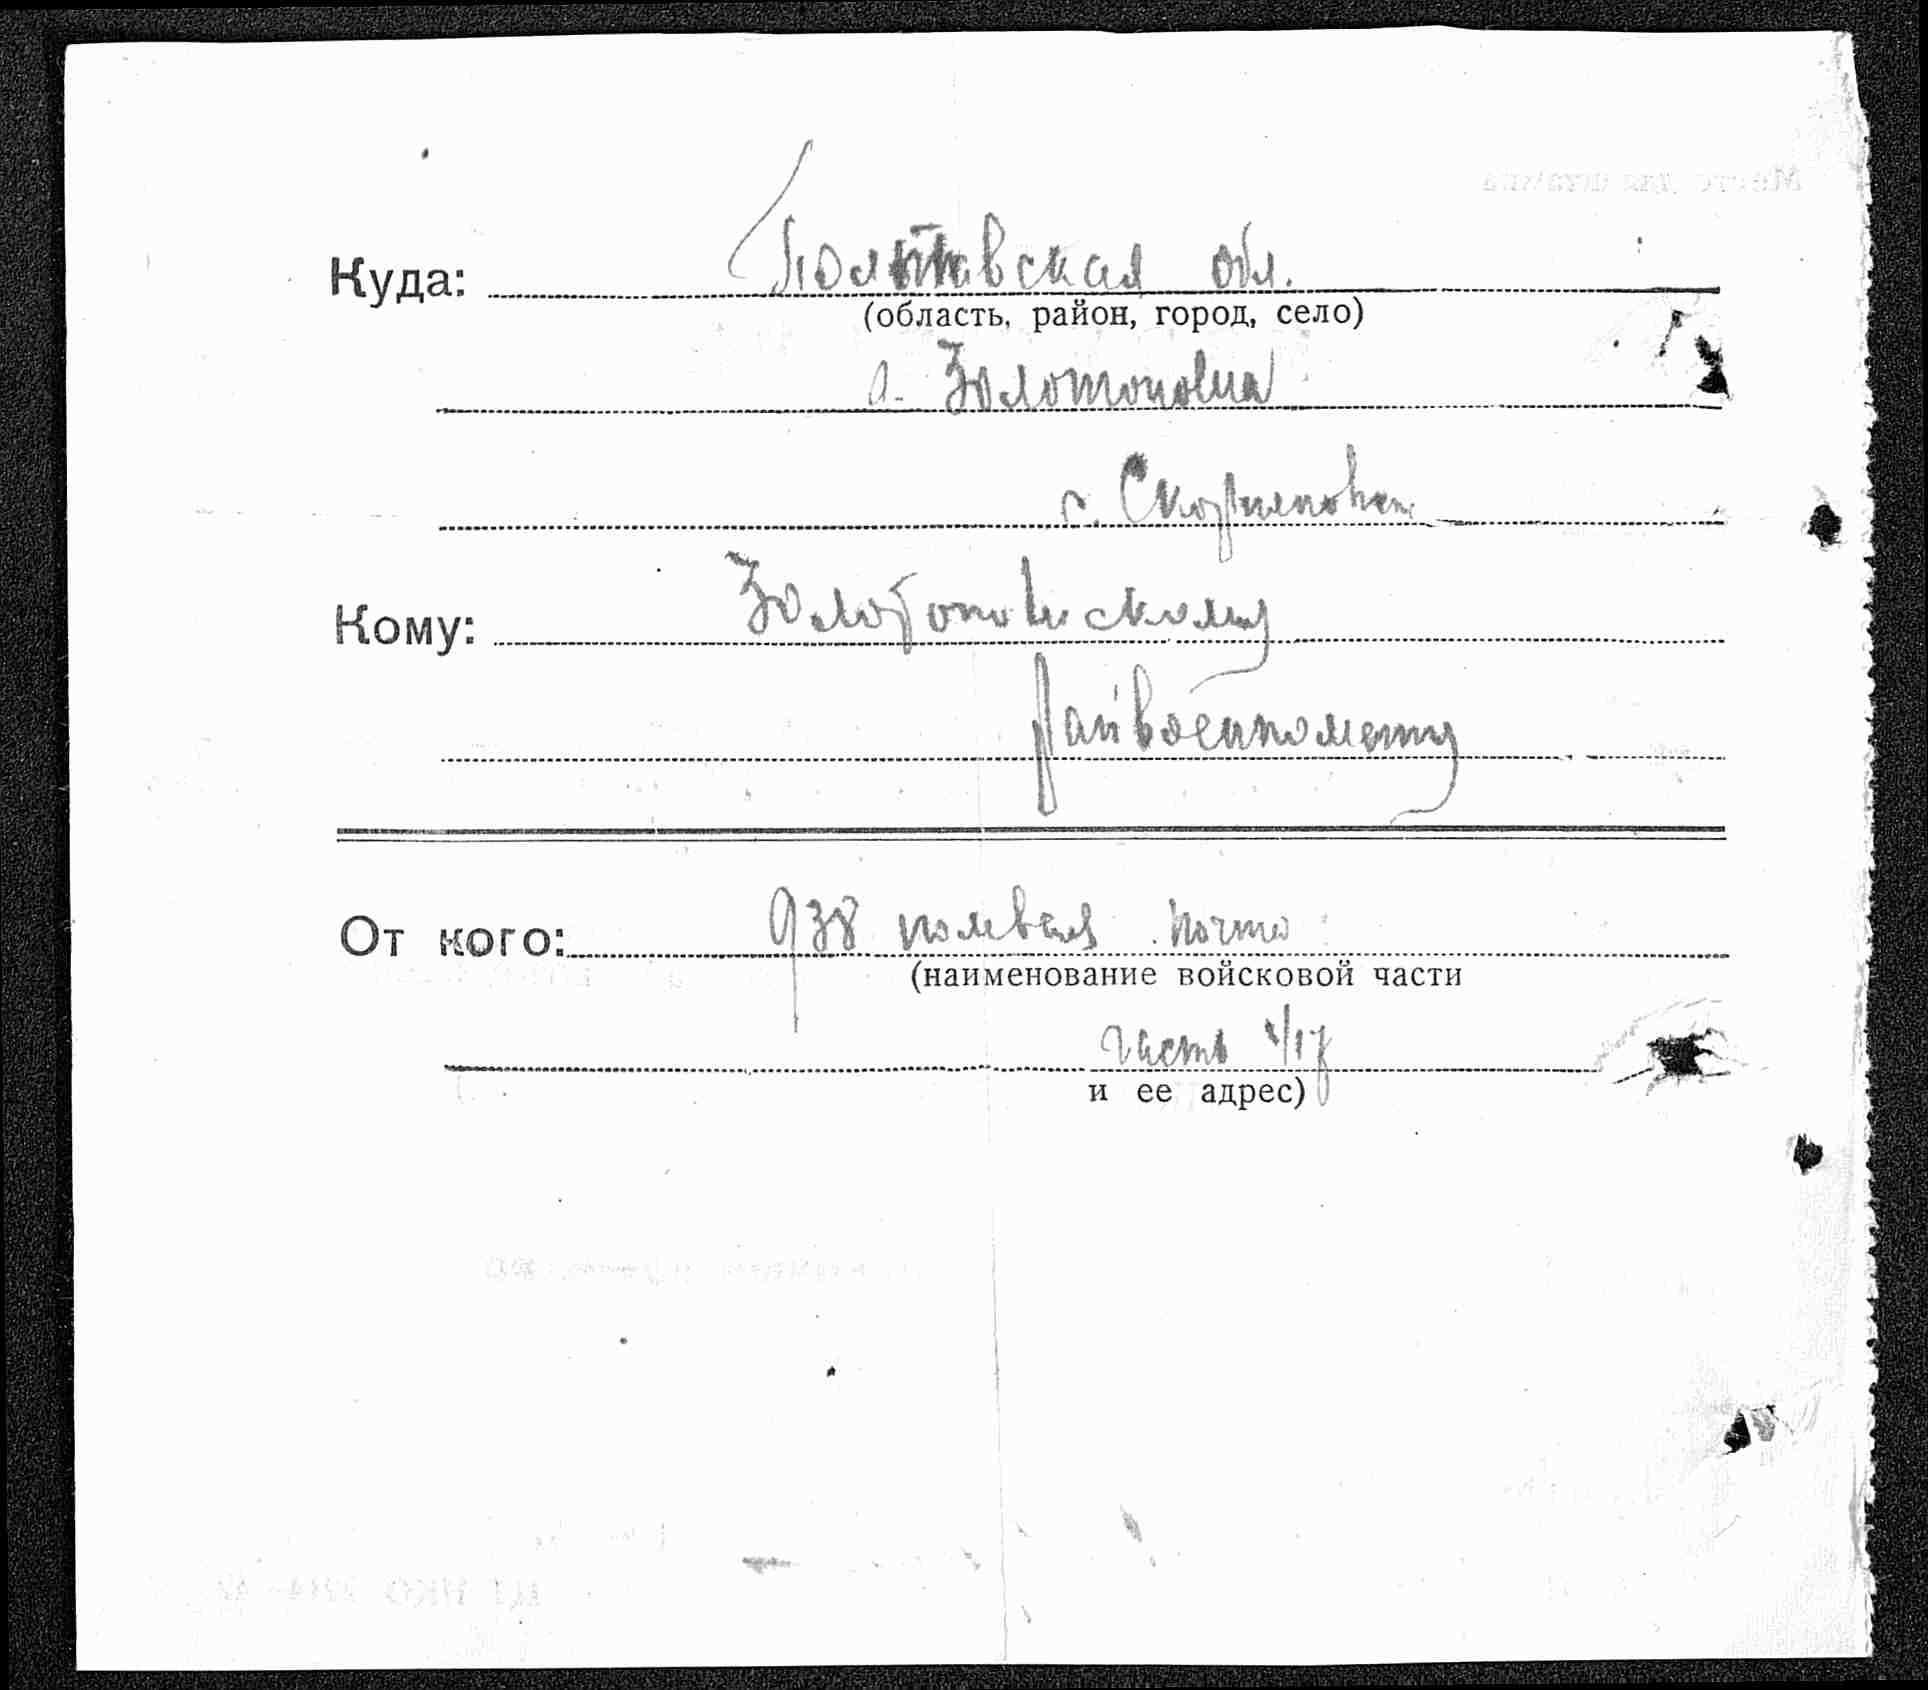 Куда: Полтавская обл.
(область, район, город, село)
с. Золотоноша
с. Скориковка
Кому: Золотоношскому
Райвоенкомату
От кого: 938 полевая почта
(наименование войсковой части
часть
и ее адрес)